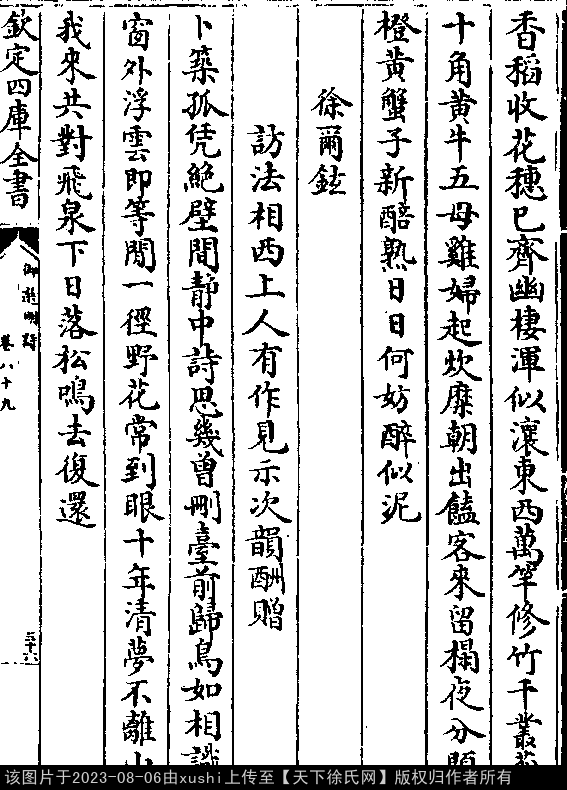 香稻收花穗已齊幽棲渾似瀼東西萬竿修竹千叢
十角黄牛五母雞婦起炊糜朝出饁客來留榻夜分
橙黄蟹子新醅熟日日何妨醉似泥
徐爾鉉
訪法相西上人有作見示次韻酬贈
卜築孤凭絶壁間靜中詩思幾曾刪臺前歸鳥如相識
窗外浮雲即等閒一徑野花常到眼十年清夢不離山
我來共對飛泉下日落松鳴去復還
欽定四庫全書
御選明詩
卷八十九
三十六
该图片于2023-08-06由xushi上传至【天下徐氏网】版权归作者所有